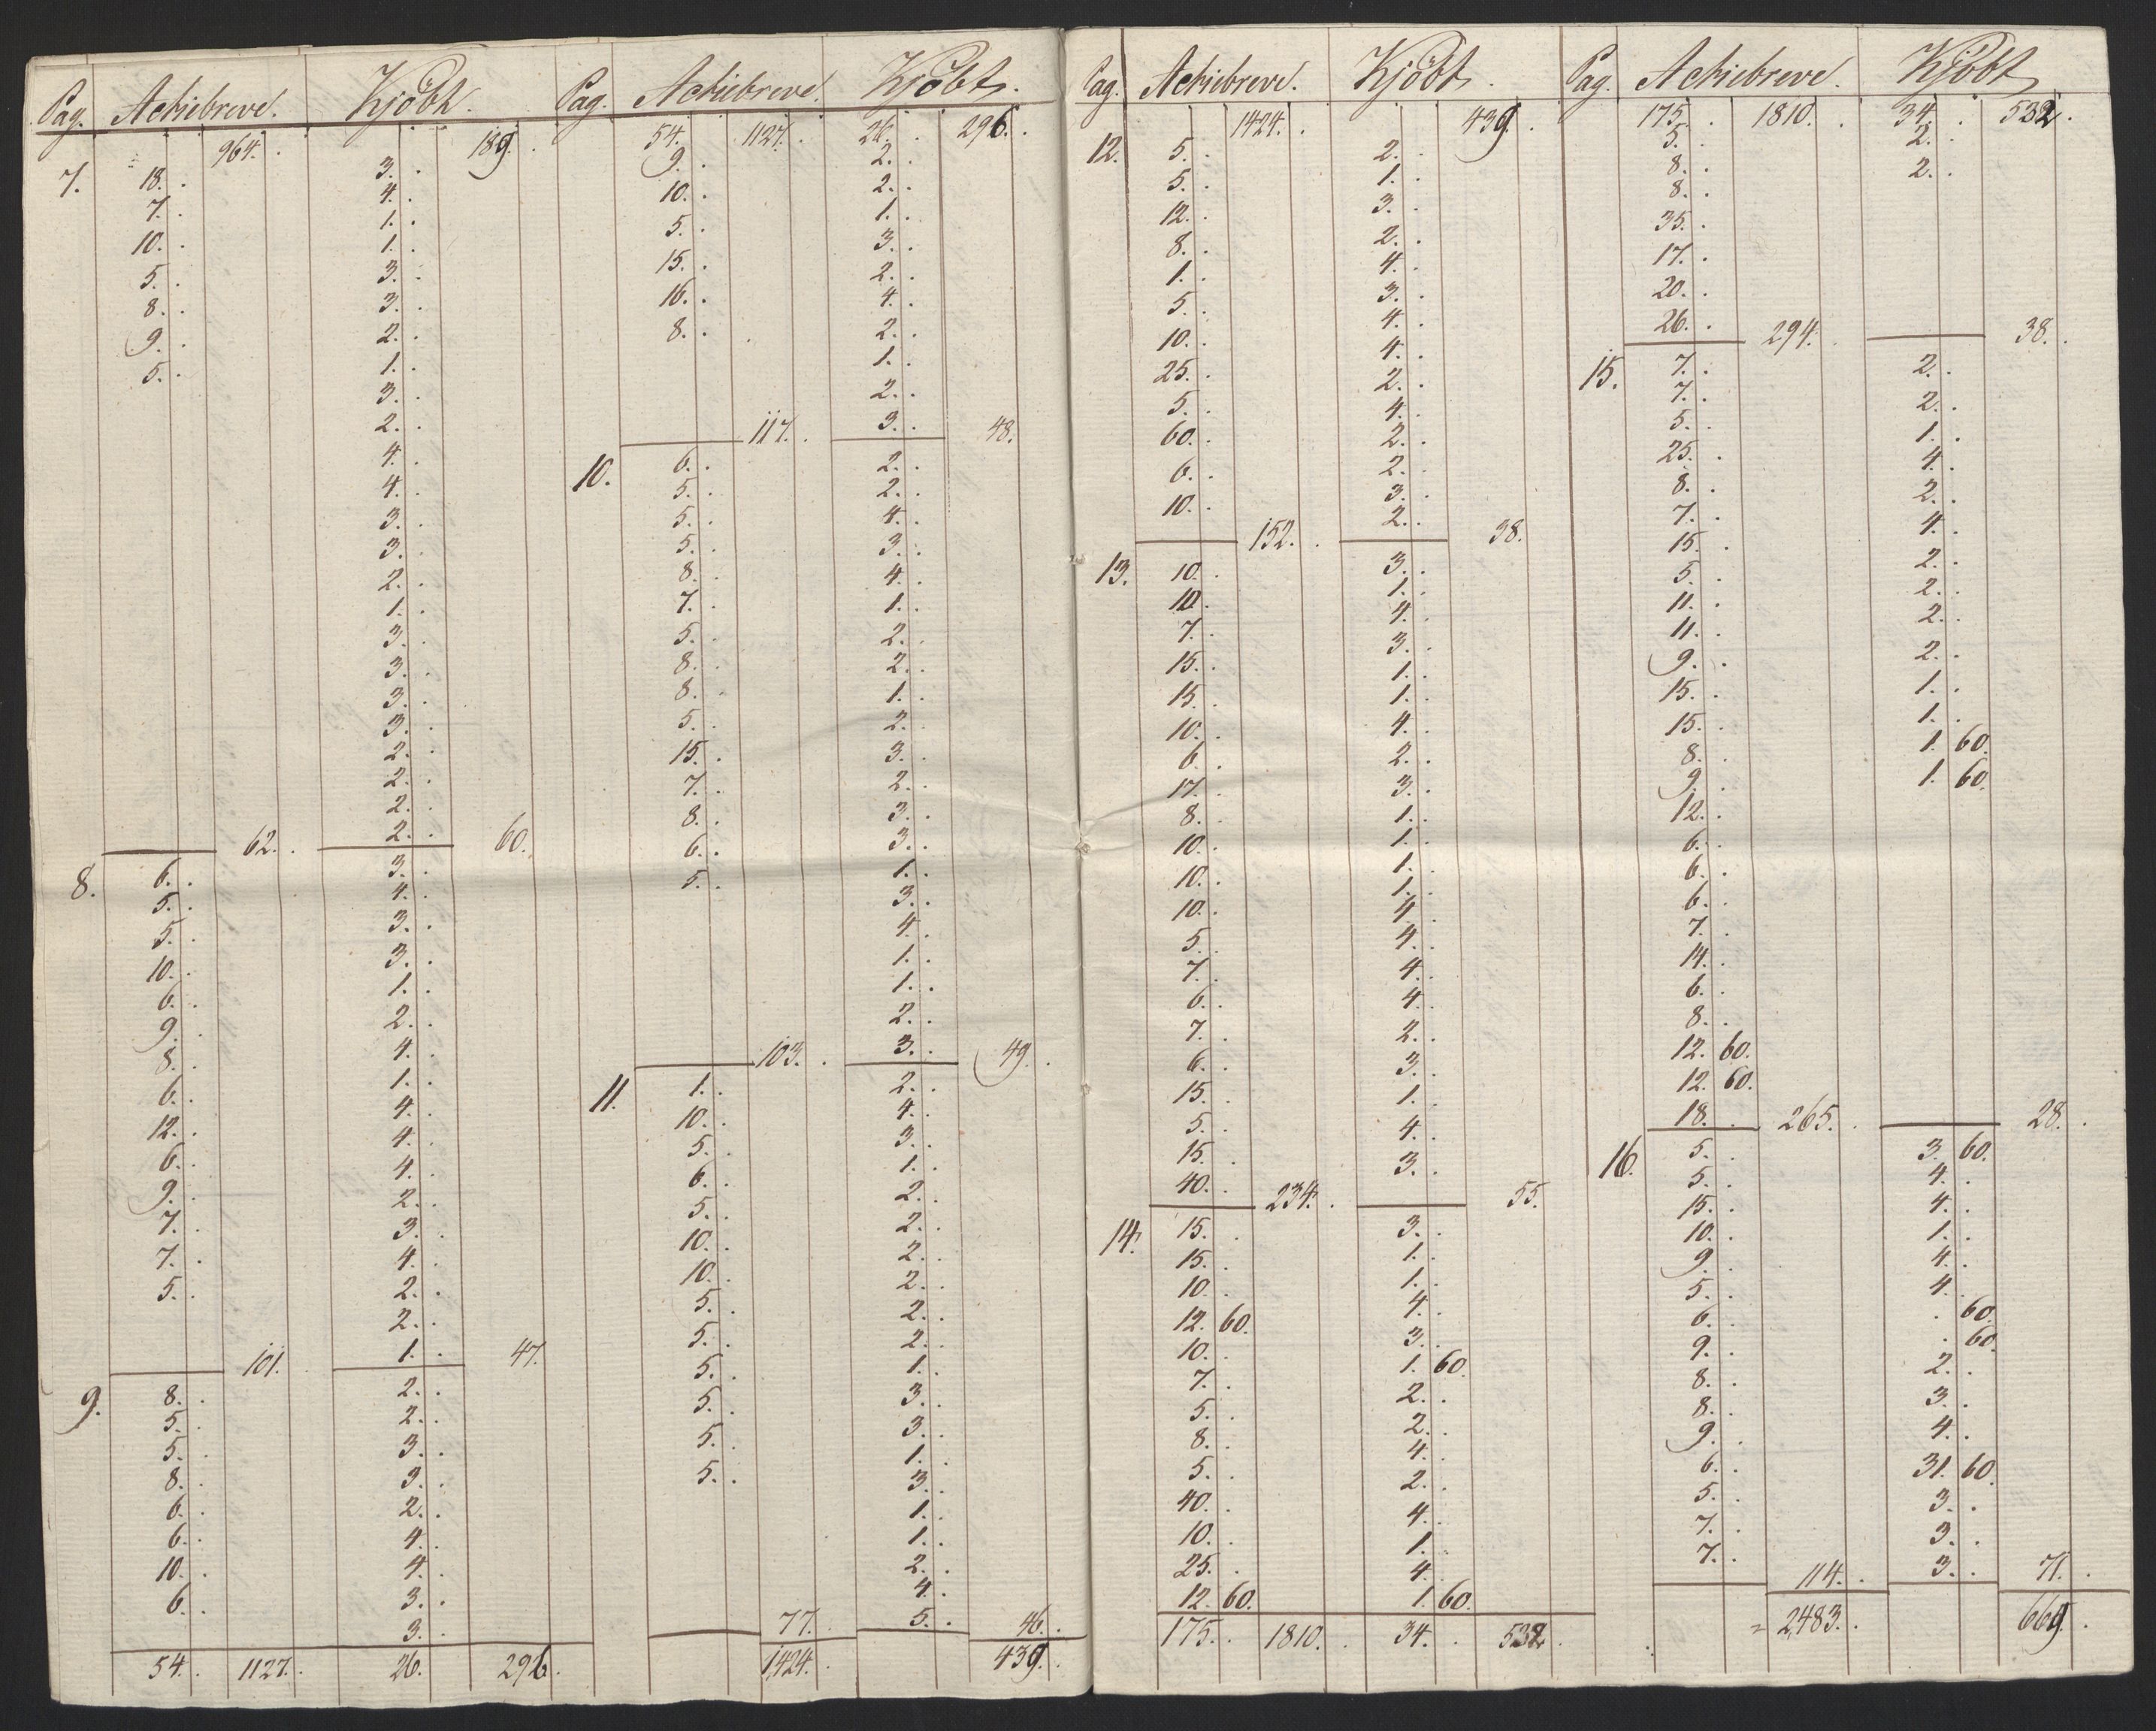 Pag. Actiebreve. Kjöbt.
964. 189.
7. 18. 3.
7. 4.
10. 1.
5. 1.
8. 3.
9. 3.
5. 2.
1.
3.
2.
4.
4.
3.
3.
2.
1.
3.
3.
3.
3.
2.
2.
2.
62. 2. 60.
8. 6. 3.
5. 4.
5. 3.
10. 3.
6. 1.
9. 2.
8. 4.
6. 1.
12. 4.
6. 4.
9. 4.
7. 2.
7. 3.
5. 4.
2.
2.
101. 1. 47.
9. 8. 2.
5. 2.
5. 3.
8. 3.
6. 2.
6. 4.
10. 4.
6. 3.
3.
54. 1127. 26. 296.
Pag. Actiebreve. Kjöbt.
54. 1127. 26. 296.
9. 2.
10. 2.
5. 1.
15. 3.
16. 2.
8. 4.
2.
1.
2.
117. 3. 48.
10. 6. 2.
5. 2.
5. 4.
5. 3.
8. 4.
7. 1.
5. 2.
8. 2.
8. 1.
5. 2.
15. 3.
7. 2.
8. 3.
6. 3.
5. 1.
3.
4.
1.
1.
2.
103. 3. 49.
11. 1. 2.
10. 4.
5. 3.
6. 1.
5. 2.
10. 2.
10. 2.
5. 2.
5. 2.
5. 2.
5. 1.
5. 3.
5. 3.
1.
3.
1.
1.
2.
4.
77. 5. 46.
1,424. 439.
Pag. Actiebreve. Kjöbt.
1424. 439.
12. 5. 2.
5. 1.
12. 3.
8. 2.
1. 4.
5. 3.
10. 4.
25. 4.
5. 2.
60. 4.
6. 2.
10. 2.
3.
152. 2. 38.
13. 10. 3.
10. 1.
7. 4.
15. 3.
15. 1.
10. 1.
6. 4.
17. 2.
8. 3.
10. 1.
10. 1.
10. 1.
5. 1.
7. 4.
6. 4.
7. 4.
6. 4.
15. 2.
5. 3.
15. 1.
40. 4.
234. 3. 55.
14. 15. 3.
15. 1.
10. 1.
12. 60. 4.
10. 3.
7. 1. 60.
5. 2.
8. 2.
5. 4.
40. 2.
10. 4.
25. 1.
12. 60. 4.
1. 60.
175. 1810. 34. 532.
Pag. Actiebreve. Kjöbt
175. 1810. 34. 532.
5. 2.
8. 2.
8.
35.
17.
20.
26. 294. 38.
15. 7. 2.
7. 2.
5. 1.
25. 4.
8. 2.
7. 4.
15. 2.
5. 2.
11. 2.
11. 2.
9. 1.
15. 1.
15. 1. 60.
8. 1. 60.
9.
12.
6.
6.
6.
7.
14.
6.
8.
12. 60.
12. 60.
18. 265. 28.
16. 5. 3. 60.
5. 4.
15. 4.
10. 1.
9. 4.
5. 4.
6. 60.
9. 60.
8. 2.
8. 3.
9. 4.
6. 31. 60.
5. 3.
7. 3.
7. 114. 3. 71.
= 2,483. 669.